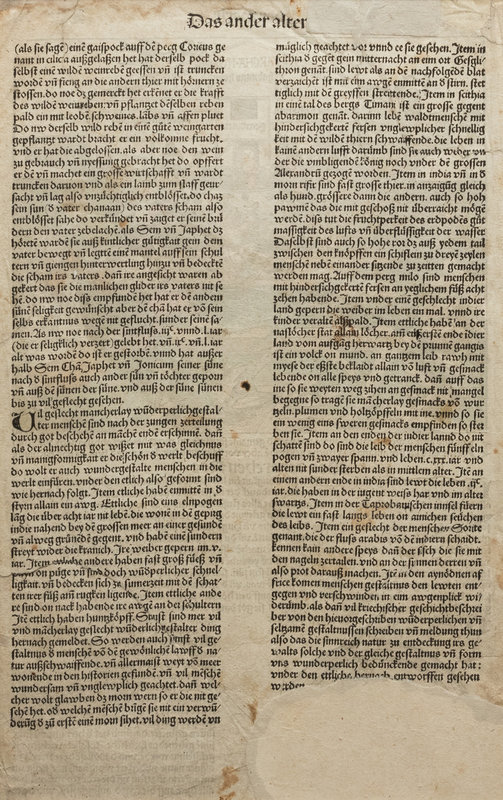 Das ander alter
(als sie sagē) einē gaispock auff dē perg Coricus ge
nant in cilicia außgelaßen het hat derselb pock da
selbst eine wilde weinrebē geessen vn̄ ist truncken
wordē vn̄ fieng an die andern thier mit hörnern ze
stossen. do noe dz gemerckt het erkēnet er die krafft
des wilden weinreben. vn̄ pflantzet dēselben reben
pald ein mit leobē schweines. lābs vn̄ affen pluet
Do nw derselb wild rebē in eine gůte weingarten
gepflantzt wardt bracht er ein volkomne frucht.
vnd er hat die abgelosen. als aber noe den wein
zu gebrauch vn̄ nyessung gebracht het do opffert
er dē vn̄ machet ein grosse wirtschafft vn̄ wardt
truncken daruon vnd als ein lamb zum slaff geur
sacht vn̄ lag also vnzüchtiglich emblösset. do cham
sein sun der vater chanaan des vaters scham also
emblösset sahe do verkündet vn̄ zaiget er seinē brü
dern den vater zebelachē. als Sem vn̄ Japhet dz
hörten warde sie auß kintlicher gütigkeit gein dem
vater bewegt vn̄ legtē eine mantel auff sein schul
tern vn̄ giengen hinterwertling hinzu vn̄ bedeckē
die scham irs vaters. dan̄ ire angesicht waren ab
gekert das sie die manlichen glider irs vaters nit se
hē. do nw noe diss empfunden het hat er dē andern
sūnē seligkeit gewünscht aber dē cham hat er vō sein
selbs erkantnus wege nit geflucht. sunder seine sa
men. Als nw noe nach der sintfluss. iijᶜ. vnnd. l. iar
(die er seligklich verzert) gelebt het. vn̄. ixᶜ. vn̄. l. iar
alt was worden do ist er gestorbē. vnnd hat außer
halb Sem Cham, Japhet vn̄ Jonicum seiner süne
nach der sintfluss auch ander sün vn̄ töchter geporn
vn̄ auß dē sünen der süne. vnd auß der süne sünen
bis zu vil geslecht gesehen.
Vil geslecht mancherlay wūderperlichgestal
ter menschē sind nach der zungen zerteilung
durch got beschehē an māchē endē erschinē. dan̄
als der almechtig got waißet mit was gleichnus
vn̄ mainigformigkait er die schön der werlt beschuff
do wolt er auch wundergestalte menschen in die
werlt einfüren. vnder den etlich also geformt sind
wie hernach folgt. Item etliche habē einmitt im der
styrn allain ein awg. Ettliche sind eins einpogen
lāg die über acht iar nit lebē die wonē in dē gepirg
indie nahend bey dē grossen meer an einer gesundē
vn̄ alweg grūnēdē gegent. vnd habē eine sūndern
streyt wider die kranich. Ire weiber gepern im. v.
iar. Item andere haben fasst groß füss vn̄
pogn pūge vn̄ sind doch wūderperlicher schnel
ligkait. vn̄ bedecken sich zu sumerzeit mit dē schat
ten irer füß am rugken ligende. Item ettliche ande
re sind on nack habende ire awgē an den schultern
Itē ettlich haben huntzköpff. Sunst sind mer vil
vnd mācherlay geslecht wūderlichgestalter ding
hernach gemeldet. So werden auch sunst vil ge
staltnus der menschē vō dē gewönliche lawff der na
tur außschwaiffende. vn̄ allermaist weyt vō meer
wonende in den historien gefunden. vn̄ vil mēsche
wundersam vn̄ vnglewplich geachtet. dan̄ wel
cher wolt glawben dz morn wern so er die nit ge
sehē het. od welche mēschē bügē sie nit ein verwū
derūg dz zu erste einē morn sihet. vil ding werdē vn
mūglich geachtet vor vnnd ee sie gesehen. Item in
scithia der gegēt gein mitternacht an ein ort Gescli
thron genāt sind lewt als an dē nachfolgēde blat
verzaichēt ist mit eim awgē einmitte an der stirn. stet
tiglich mit dē greyffen streittende. Item in scithia
in eine tal des bergs Timaij ist ein grosse gegent
abarimon genāt. darinn lebē waldmenschē mit
hindersichgekertē fersen vnglewplicher schnellig
keit mit dē wilde thiern schwaiffende. die leben in
kaine andern lufft darumb sind sie auch weder vn
der die vmbligende könig noch vnder dē grossen
Alexandrū gezogē worden. Item in india vn̄ in der
morn refir sind fasst grosse thier. in anzaigūg gleich
als hund. grössere dann die andern. auch so hoh
pawm das die mit geschoß nit überraicht mögē
werdē. diß tut die fruchtperkeit des erdpodes gūt
massigkeit des lufts vn̄ überflüssigkeit der wasser
Daselbst sind auch so hohe ror dz auß yedem tail
zwischen den knöpffen ein schiflein zu dreyen zeyten
mensche nebē einander sitzende zu zeiten gemacht
werden mag. Auff dem perg milo sind menschen
mit hindersichgekertē fersen an yeglichem fūß acht
zehen habende. Item vnder eine geschlecht indier
land gepern die weiber im leben ein mal. vnnd ire
kinder veraltē alspald. Item ettliche habē an der
naslöcher stat allain löcher. am eussersten ende idier
land vom aufgang herwartz bey dē prunnē gangis
ist ein volck on mund. an gantzem leib rawh mit
myese der esste beklaidt allain vō luft vn̄ gesmack
lebende on alle speys vnd getranck. dan̄ auff das
inn so sie weyten weg zihen an gesmack nit mangel
begegne so trage sie mācherlay gesmacks vō wur
tzeln. plumen vnd holtzöpfeln mit ine. vnnd so sie
ein wenig eins sweren gesmacks empfinden so ster
ben sie. Item an den ende der indier lannd do nit
schatte sind do sind die leib der menschen fünff eln
pogen vn̄ zwayer spann. vnd leben. c.xxx. iar. vnd
alten nit sunder sterben als in mittlem alter. Itē an
einem andern ende in india sind lewt die leben. ijᶜ.
iar. die haben in der iugent weiß har vnd im alter
swartzs. Item in der Taprobanischen innsel filein
die lewt ein fast langs leben on ainichen süchen
des leibs. Item ein geslecht der menschen Sorite
genant. die der fluss arabis vō dē indiern schaidt.
kennen kain andere speys dan̄ der fisch die sie mit
den nageln zertailen. vnd an der sunnen dorren vn̄
also prot daraus machen. Itē zu den aynödnen af
frice komen menschen gestaltnuss den lewten ent
gegen vnd verschwinden in eim awgenplick wi
derumb. als dan̄ vil kriechischer geschichtbeschrei
ber von den hieuorgeschriben wūderperlichen vn̄
seltzame gestaltnussen schreiben vn̄ meldung thun
also das die sinnreich natur zu entdeckung irs ge
walts solche vnd der gleiche gestaltnus vn̄ form
vns wunderperlich bedūnckende gemacht hat:
vnder den ettliche hernach entworffen gesehen
werden